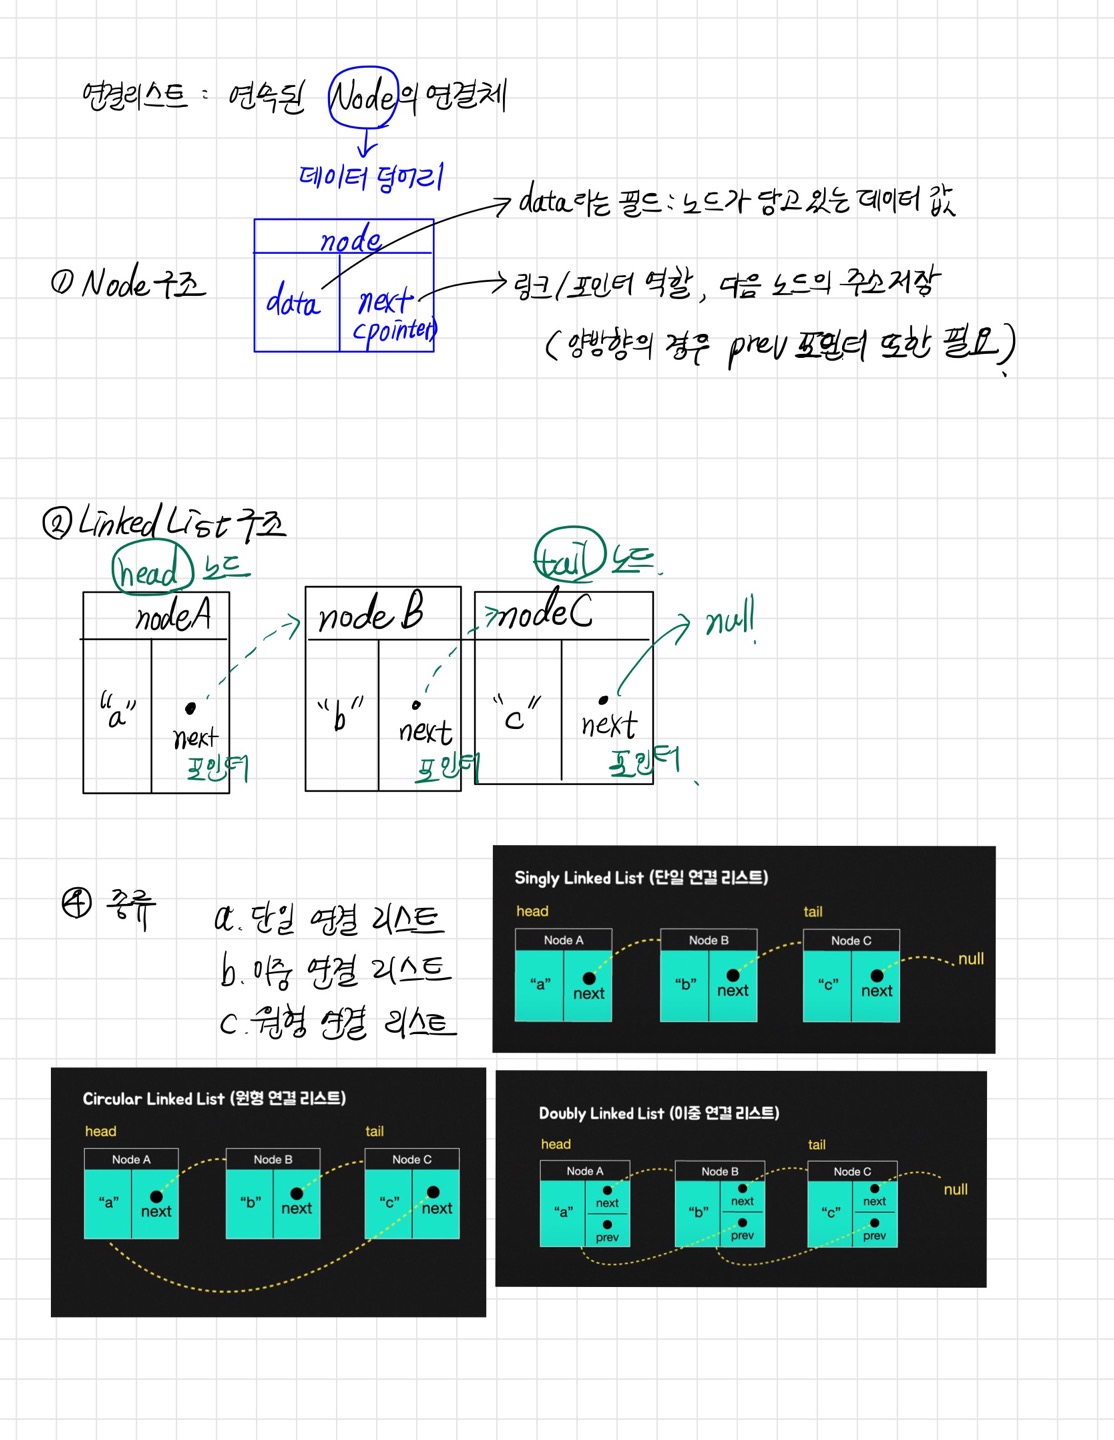 연결리스트 : 연속된 Node의 연결체
데이터 덩어리
data라는 필드 : 노드가 담고 있는 데이터 값
node
① Node 구조
data
next
(pointer)
링크/포인터 역할, 다음 노드의 주소저장
(양방향의 경우 prev 포인터 또한 필요)
② Linked List 구조
head 노드
tail 노드
nodeA
node B
nodeC
null
"a"
next
포인터
"b"
next
포인터
"c"
next
포인터
④ 종류
a. 단일 연결 리스트
b. 이중 연결 리스트
c. 원형 연결 리스트
Singly Linked List (단일 연결 리스트)
head
tail
Node A
Node B
Node C
null
"a"
next
"b"
next
"c"
next
Circular Linked List (원형 연결 리스트)
head
tail
Node A
Node B
Node C
"a"
next
"b"
next
"c"
next
Doubly Linked List (이중 연결 리스트)
head
tail
Node A
Node B
Node C
null
"a"
next
prev
"b"
next
prev
"c"
next
prev